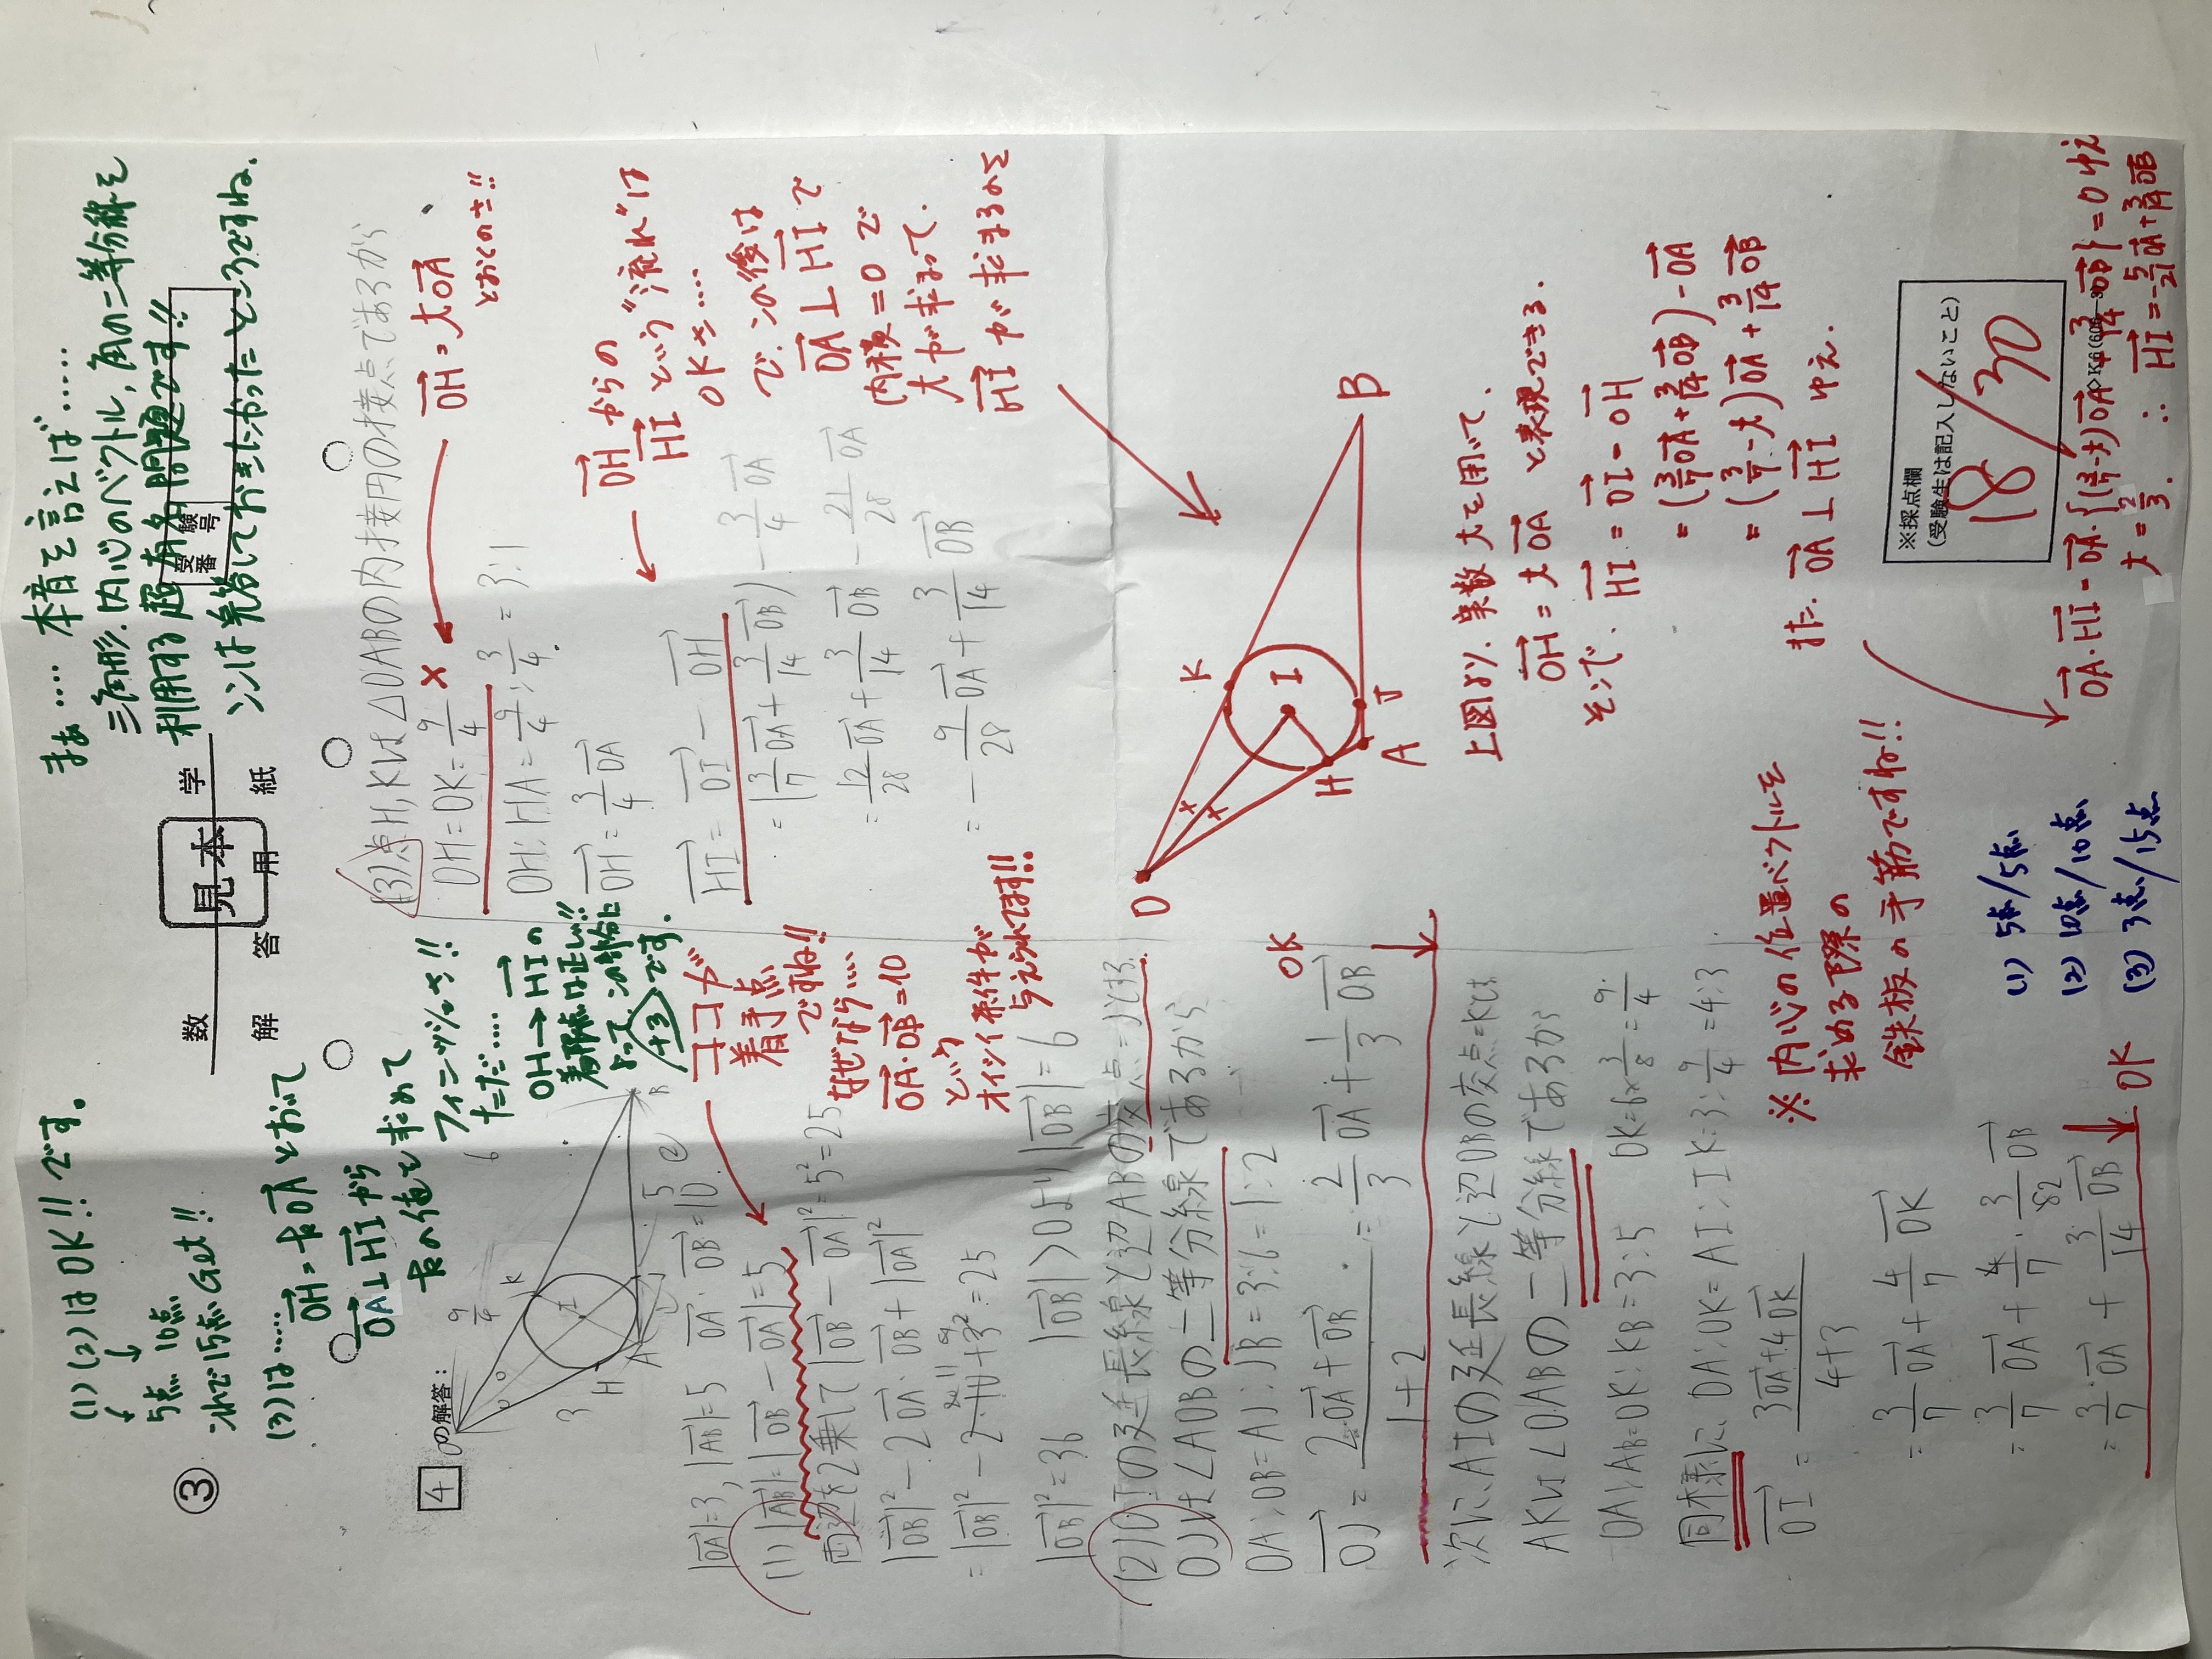 ③
(1)(2)はOK!!です。
↓ ↓
5点 10点
これで15点Get!!
(3)は……
OH=kOAとおいて
OA⊥HIから
kの値を求めて
フィニッシュさ!!
ただ……
OH→HIの
着眼点は正しい!!
よって、この時点に
+3です。
まぁ…… 本音を言えば……
三角形、内心のベクトル、角の二等分線を
利用する超有名問題です!!
ココは完答しておきたかったところですね。
数 学
見本
解 答 用 紙
受験番号
4
の解答:
O
9/4
K
I
3
H
A
J
5
B
6
|OA|=3, |AB|=5 OA・OB=10
(1) |AB|=|OB-OA|=5
両辺を2乗して |OB-OA|²=5²=25
|OB|²-2OA・OB+|OA|²
=|OB|²-2・10+3²=25
|OB|²=36 |OB|>0より |OB|=6
ココが
着手点
ですね!!
なぜなら……
OA・OB=10
という
オイシイ条件が
与えられてます!!
(2) OIの延長線と辺ABの交点=Jとする。
OJは∠AOBの二等分線であるから
OA:OB=AJ:JB=3:6=1:2
OJ=(2OA+OB)/(1+2)=2/3 OA+1/3 OB
OK
次に、AIの延長線と辺OBの交点=Kは
AKは∠OABの二等分線であるから
OA:AB=OK:KB=3:5 OK=6×3/8=9/4
同様に、OA:OK=AI:IK=3:9/4=4:3
OI=(3OA+4OK)/(4+3)
=3/7 OA+4/7 OK
=3/7 OA+4/7・3/8 OB
=3/7 OA+3/14 OB
OK
※内心の位置ベクトルを
求める際の
鉄板の手筋ですね!!
(3) 点H,Kは△OABの内接円の接点であるから
OH=OK=9/4 ×
OH=tOA
とおくのさ!!
OH:HA=9/4:3/4=3:1
OH=3/4 OA
HI=OI-OH
=(3/7 OA+3/14 OB)-3/4 OA
=12/28 OA+3/14 OB-21/28 OA
=-9/28 OA+3/14 OB
OHからの
HIという"流れ"は
OKさ……
で、この後は
OA⊥HIで
(内積=0で
tが求まって、
HIが求まるのさ
O
K
I
H
A
J
B
上図より、実数tを用いて、
OH=tOA と表現できる。
そこで、HI=OI-OH
=(3/7 OA+3/14 OB)-tOA
=(3/7-t)OA+3/14 OB
また、OA⊥HI ゆえ、
OA・HI=OA・{(3/7-t)OA+3/14 OB}=0ゆえ
t=2/3. ∴ HI=-5/21 OA+3/14 OB
(1) 5点/5点
(2) 10点/10点
(3) 3点/15点
※採点欄
(受験生は記入しないこと)
18/30